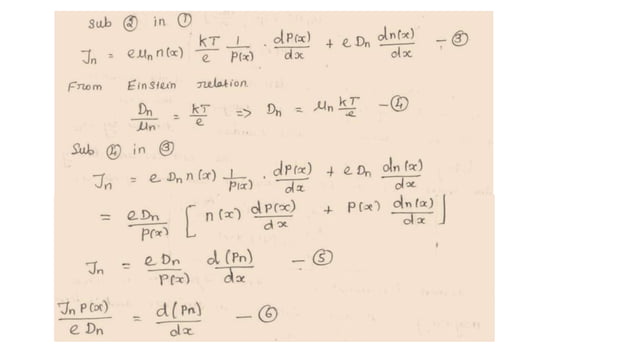 Sub ② in ①
Jn = eμn n(x) kT/e 1/P(x) · dP(x)/dx + e Dn dn(x)/dx — ③
From Einstein relation
Dn/μn = kT/e => Dn = μn kT/e — ④
Sub ④ in ③
Jn = e Dn n(x) 1/P(x) · dP(x)/dx + e Dn dn(x)/dx
= e Dn/P(x) [ n(x) dP(x)/dx + P(x) dn(x)/dx ]
Jn = e Dn/P(x) d(Pn)/dx — ⑤
Jn P(x)/e Dn = d(Pn)/dx — ⑥